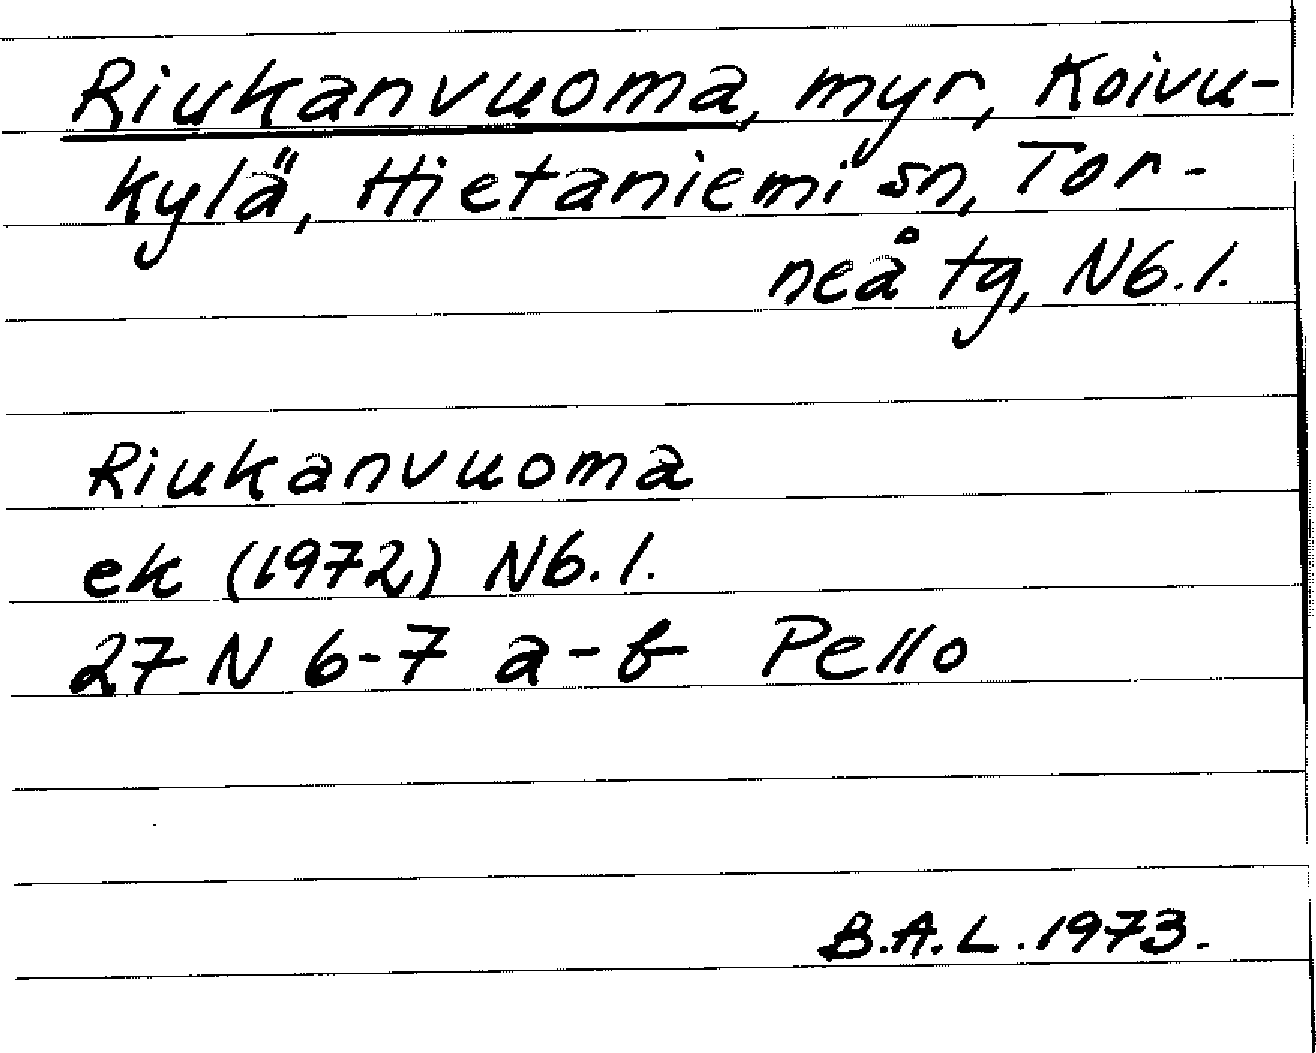 Riukanvuoma, myr, Koivu-
kylä, Hietaniemi sn, Tor-
neå tg, Nb.l.
Riukanvuoma
ek (1972) Nb.l.
27 N 6-7 a-b Pello
B.A.L. 1973.